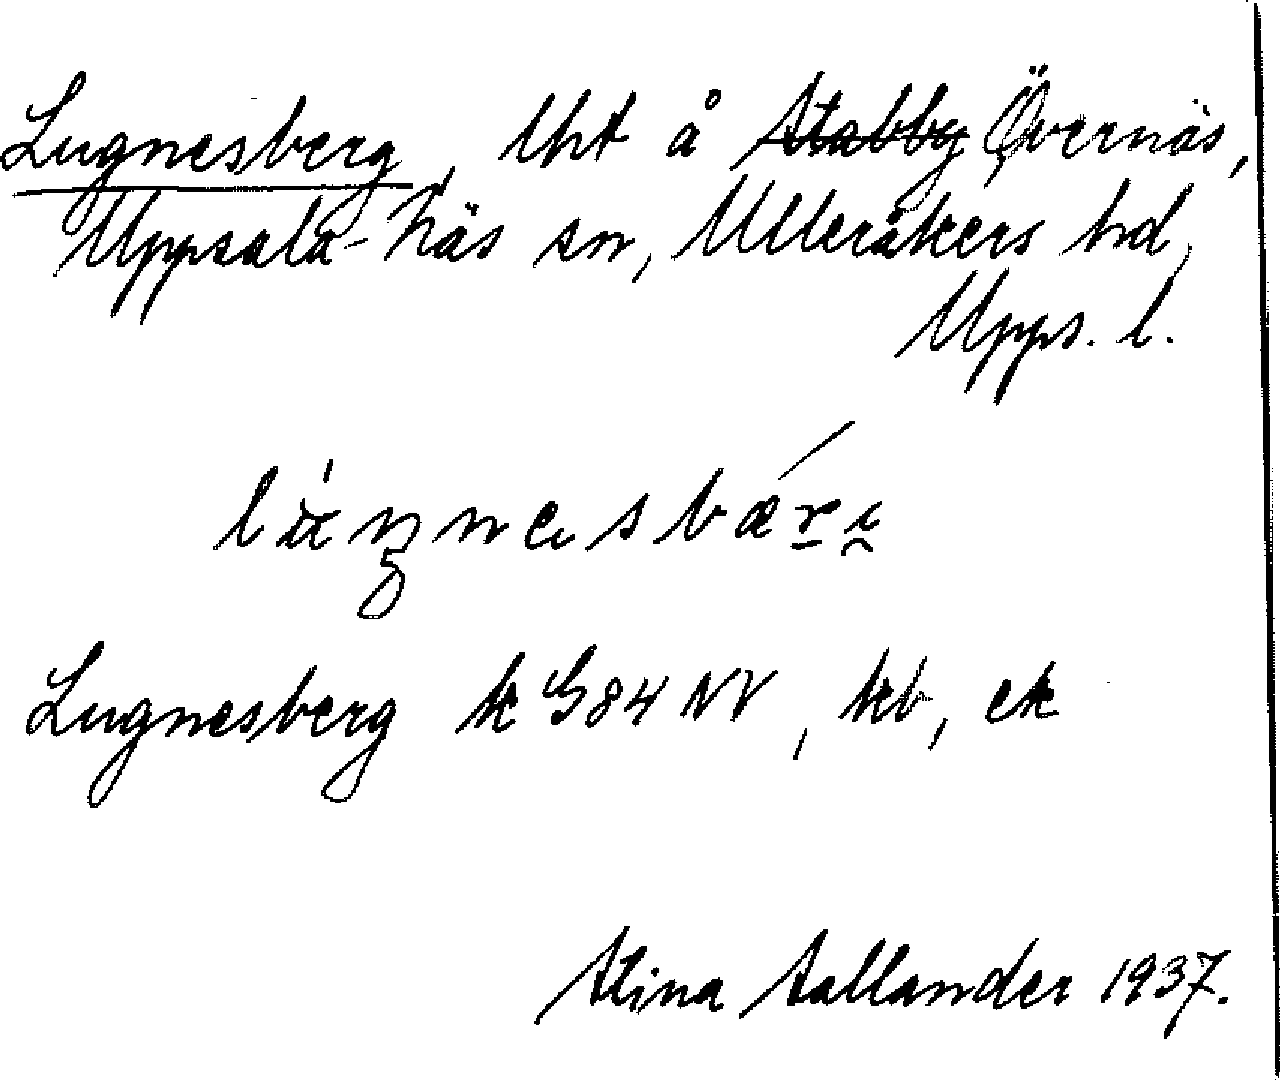 Lugnesberg, lht å ~~Stabby~~ Övernäs,
Uppsala-Näs sn, Ulleråkers hd,
Upps. l.
Lugnesberg k G84 NV, kb, ek
Stina Sallander 1937.